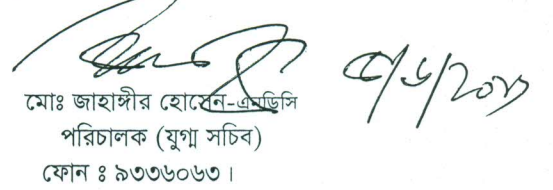 ৫/৬/২০১৭
মোঃ জাহাঙ্গীর হোসেন-এনডিসি
পরিচালক (যুগ্ম সচিব)
ফোন ঃ ৯৩৩৬০৬৩।